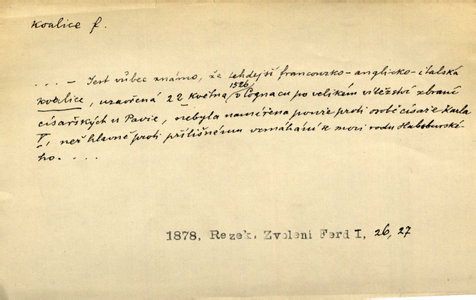 Koalice f.
. . . – Jest vůbec známo, že tehdejší francouzsko-anglicko-italská
koalice, uzavřená 22 května 1526 v Cognacu po velikém vítězství zbraní
císařských u Pavie, nebyla namířena pouze proti osobě císaře Karla
V, než hlavně proti přílišnému vzmáhání k moci rodu Habsburské-
ho. – . . .
1878, Rezek. Zvolení Ferd I, 26, 27